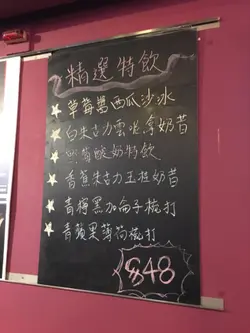 精選特飲
草莓萬西瓜沙冰
白朱古力雲呢拿奶昔
熱荷酸奶特飲
香蕉朱古力王拉奶昔
青梅黑加侖子梳打
青蘋果薄荷梳打
$48